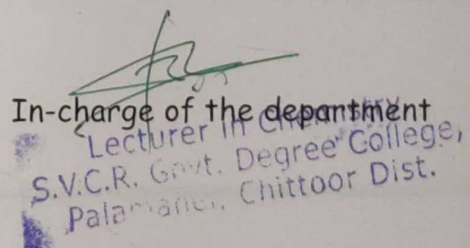 In-charge of the department
Lecturer in Chemistry
S.V.C.R. Govt. Degree College,
Palamaner, Chittoor Dist.